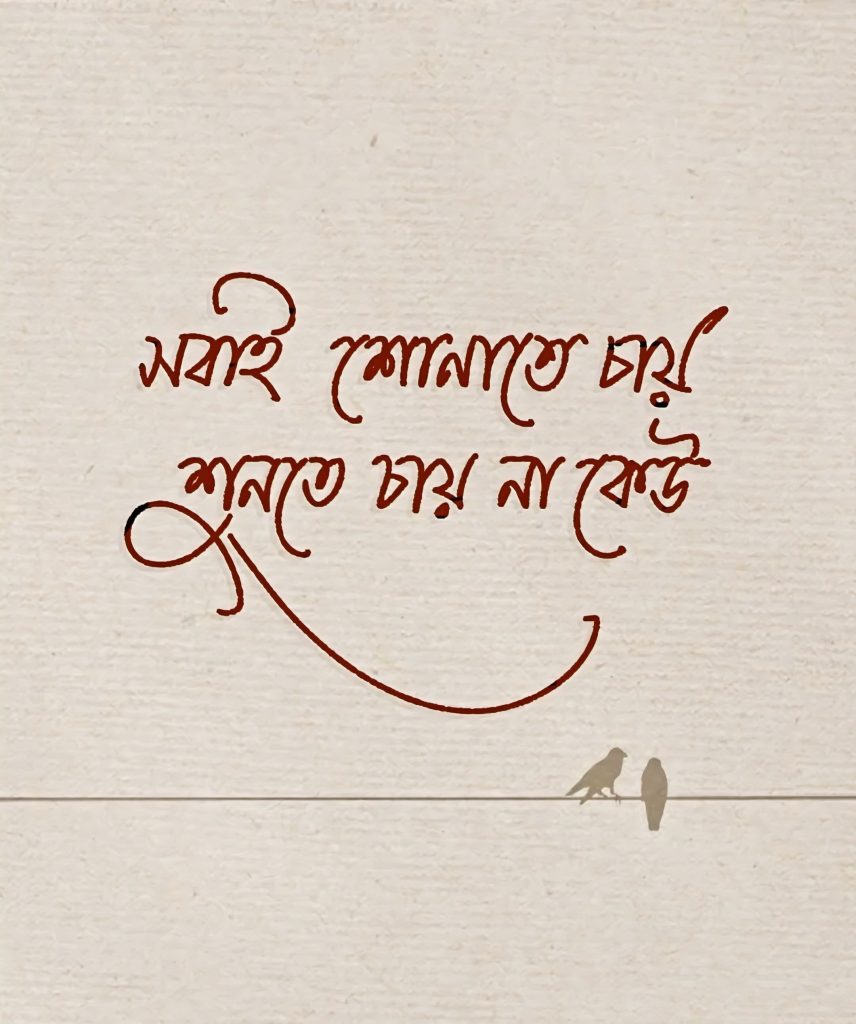 সবাই শোনাতে চায়
শুনতে চায় না কেউ